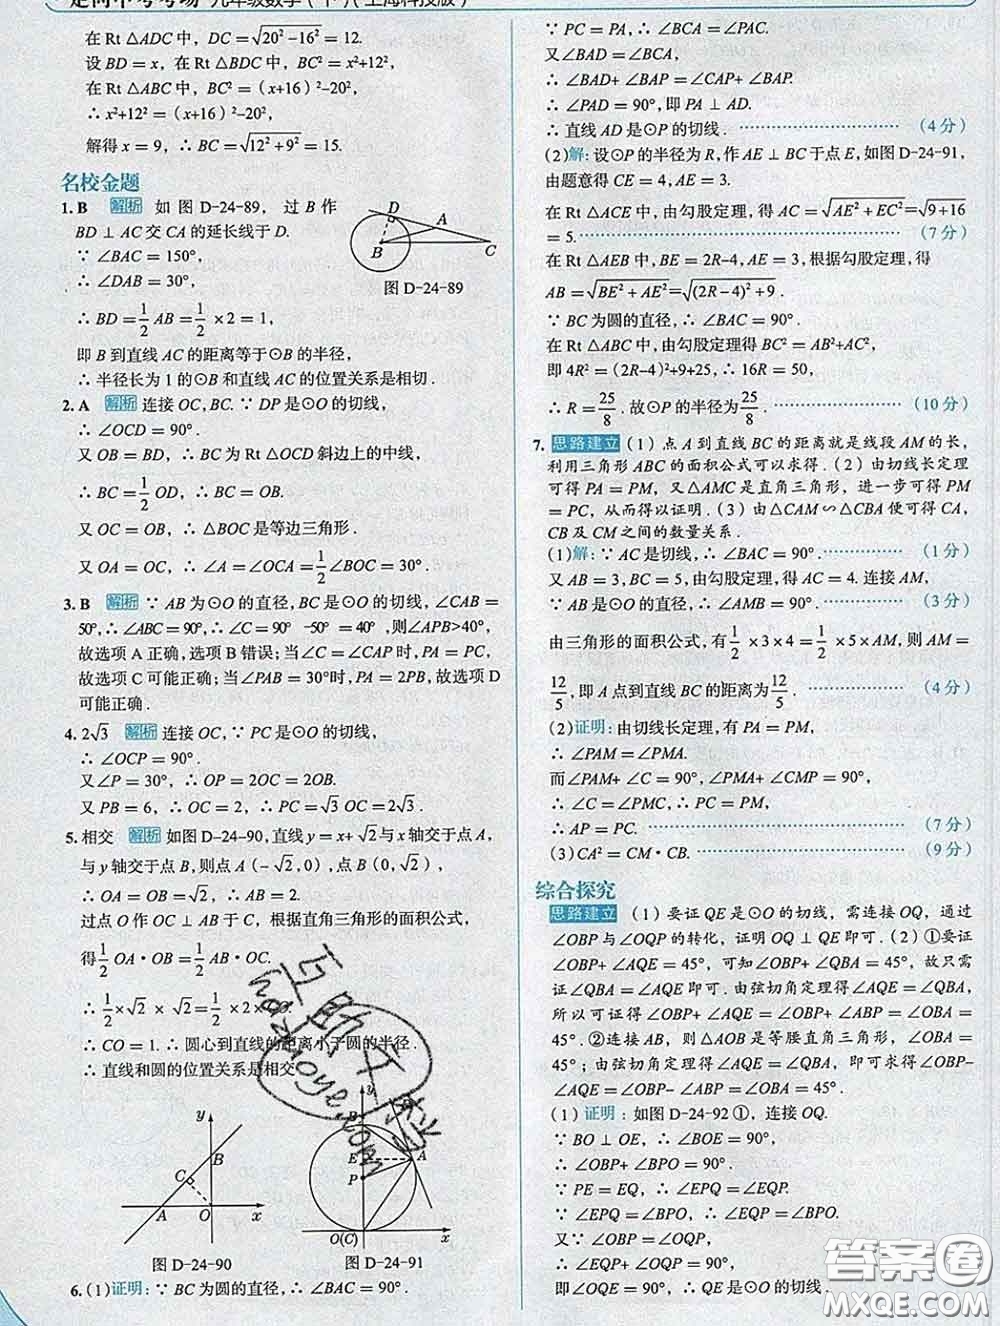 走向中考考场 九年级数学(下)(上海科技版)
在 Rt △ADC 中, DC=√(20²-16²)=12.
设 BD=x, 在 Rt △BDC 中, BC²=x²+12²,
在 Rt △ABC 中, BC²=(x+16)²-20²,
∴ x²+12²=(x+16)²-20²,
解得 x=9, ∴ BC=√(12²+9²)=15.
名校金题
1. B 解析 如图 D-24-89, 过 B 作
BD⊥AC 交 CA 的延长线于 D.
∵ ∠BAC=150°,
∴ ∠DAB=30°,
∴ BD=1/2 AB=1/2×2=1,
即 B 到直线 AC 的距离等于⊙B 的半径,
∴ 半径长为 1 的⊙B 和直线 AC 的位置关系是相切.
D
A
B
C
图 D-24-89
2. A 解析 连接 OC, BC. ∵ DP 是⊙O 的切线,
∴ ∠OCD=90°.
又 OB=BD, ∴ BC 为 Rt △OCD 斜边上的中线,
∴ BC=1/2 OD, ∴ BC=OB.
又 OC=OB, ∴ △BOC 是等边三角形.
又 OA=OC, ∴ ∠A=∠OCA=1/2∠BOC=30°.
3. B 解析 ∵ AB 为⊙O 的直径, BC 是⊙O 的切线, ∠CAB=
50°, ∴ ∠ABC=90°, ∴ ∠C=90°-50°=40°, 则∠APB>40°,
故选项 A 正确, 选项 B 错误; 当∠C=∠CAP 时, PA=PC,
故选项 C 可能正确; 当∠PAB=30°时, PA=2PB, 故选项 D
可能正确.
4. 2√3 解析 连接 OC, ∵ PC 是⊙O 的切线,
∴ ∠OCP=90°.
又∠P=30°, ∴ OP=2OC=2OB.
又 PB=6, ∴ OC=2, ∴ PC=√3 OC=2√3.
5. 相交 解析 如图 D-24-90, 直线 y=x+√2与 x 轴交于点 A,
与 y 轴交于点 B, 则点 A(-√2,0), 点 B(0,√2),
∴ OA=OB=√2, ∴ AB=2.
过点 O 作 OC⊥AB 于 C, 根据直角三角形的面积公式,
得1/2 OA·OB=1/2
∴ 1/2×√2×√2=1/2×2
∴ CO=1. ∴ 圆心到直线的距离小于圆的半径.
∴ 直线和圆的位置关系是相交.
y
B
C
A
O
x
图 D-24-90
y
B
E
A
P
O(C)
x
图 D-24-91
6. (1)证明: ∵ BC 为圆的直径, ∴ ∠BAC=90°.
∵ PC=PA, ∴ ∠BCA=∠PAC.
又∠BAD=∠BCA,
∴ ∠BAD+∠BAP=∠CAP+∠BAP.
∴ ∠PAD=90°, 即 PA⊥AD.
∴ 直线 AD 是⊙P 的切线. (4 分)
(2)解: 设⊙P 的半径为 R, 作 AE⊥BC 于点 E, 如图 D-24-91,
由题意得 CE=4, AE=3.
在 Rt △ACE 中, 由勾股定理, 得 AC=√(AE²+EC²)=√(9+16)
=5. (7 分)
在 Rt △AEB 中, BE=2R-4, AE=3, 根据勾股定理, 得
AB=√(BE²+AE²)=√((2R-4)²+9).
∵ BC 为圆的直径, ∴ ∠BAC=90°.
在 Rt △ABC 中, 由勾股定理得 BC²=AB²+AC²,
即 4R²=(2R-4)²+9+25, ∴ 16R=50,
∴ R=25/8. 故⊙P 的半径为25/8. (10 分)
7. 思路建立 (1) 点 A 到直线 BC 的距离就是线段 AM 的长,
利用三角形 ABC 的面积公式可以求得. (2) 由切线长定理
可得 PA=PM, 又△AMC 是直角三角形, 进一步可得 PM
=PC, 从而得以证明. (3) 由△CAM∽△CBA 便可得 CA,
CB 及 CM 之间的数量关系.
(1)解: ∵ AC 是切线, ∴ ∠BAC=90°. (1 分)
又 AB=3, BC=5, 由勾股定理, 得 AC=4. 连接 AM,
∵ AB 是⊙O 的直径, ∴ ∠AMB=90°. (3 分)
由三角形的面积公式, 有1/2×3×4=1/2×5×AM, 则 AM=
12/5, 即 A 点到直线 BC 的距离为12/5. (4 分)
(2)证明: 由切线长定理, 有 PA=PM,
∴ ∠PAM=∠PMA.
而∠PAM+∠C=90°, ∠PMA+∠CMP=90°,
∴ ∠C=∠PMC, ∴ PC=PM,
∴ AP=PC. (7 分)
(3) CA²=CM·CB. (9 分)
综合探究
思路建立 (1) 要证 QE 是⊙O 的切线, 需连接 OQ, 通过
∠OBP 与∠OQP 的转化, 证明 OQ⊥QE 即可. (2) ①要证
∠OBP+∠AQE=45°, 可知∠OBP+∠QBA=45°, 故只需
证得∠QBA=∠AQE 即可. 由弦切角定理得∠AQE=∠QBA,
所以可证得∠OBP+∠AQE=∠OBP+∠QBA=∠OBA=
45°. ②连接 AB, 则△AOB 是等腰直角三角形, ∴ ∠OBA=
45°; 由弦切角定理得∠AQE=∠QBA, 即可求得∠OBP-
∠AQE=∠OBP-∠ABP=∠OBA=45°.
(1) 证明: 如图 D-24-92 ①, 连接 OQ.
∵ BO⊥OE, ∴ ∠BOE=90°,
∴ ∠OBP+∠BPO=90°.
∵ PE=EQ, ∴ ∠EPQ=∠EQP.
∵ ∠EPQ=∠BPO, ∴ ∠EQP=∠BPO.
又∵ ∠OBP=∠OQP,
∴ ∠OQP+∠EQP=∠OBP+∠BPO=90°,
即∠OQE=90°, ∴ QE 是⊙O 的切线.
答案卷
MXQE.COM